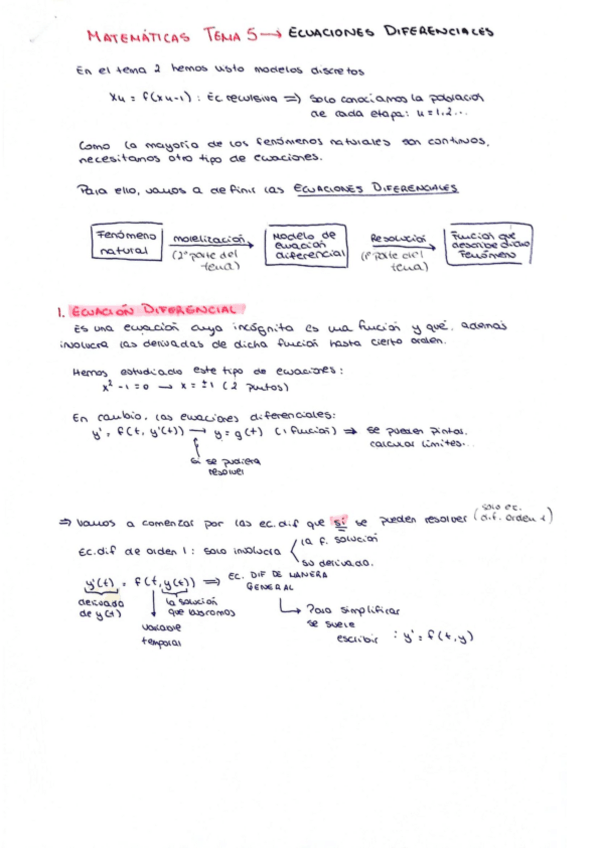 MATEMÁTICAS TEMA 5 → ECUACIONES DIFERENCIALES
En el tema 2 hemos visto modelos discretos
xn = f(xn-1) : Ec recursiva ⇒ solo conocíamos la población
de cada etapa: n = 1,2...
Como la mayoría de los fenómenos naturales son continuos,
necesitamos otro tipo de ecuaciones.
Para ello, vamos a definir las ECUACIONES DIFERENCIALES
Fenómeno natural → modelización (2ª parte del tema) → Modelo de ecuación diferencial → Resolución (1ª parte del tema) → Función que describe dicho Fenómeno
1. ECUACIÓN DIFERENCIAL
Es una ecuación cuya incógnita es una función y que, además
involucra las derivadas de dicha función hasta cierto orden.
Hemos estudiado este tipo de ecuaciones:
x² -1 = 0 → x = ±1 (2 puntos)
En cambio, las ecuaciones diferenciales:
y' = f(t, y'(t)) → y = g(t) (1 función) ⇒ se pueden pintar,
calcular límites...
si se pudiera
resolver
⇒ Vamos a comenzar por las ec.dif que sí se pueden resolver (solo ec. dif. orden 1)
Ec.dif de orden 1: solo involucra
la f. solución
su derivada.
y'(t) = f(t, y(t)) ⇒ EC. DIF DE MANERA
GENERAL
derivada
de y(t)
variable
temporal
la solución
que buscamos
Para simplificar
se suele
escribir : y' = f(t,y)